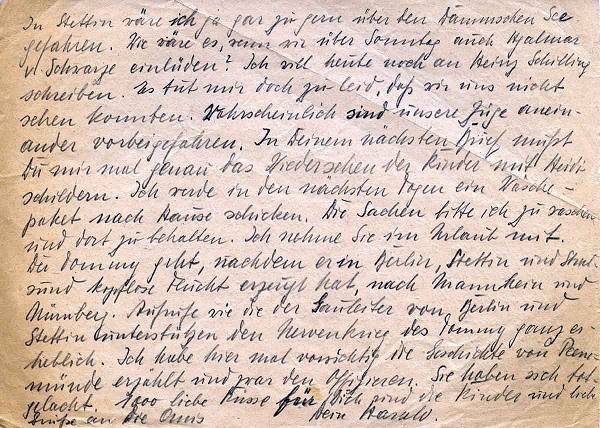 In Stettin wäre ich ja gar zu gern über den Dammschen See
gefahren. Wie wäre es, wenn wir über Sonntag auch Hjalmar
v. Schwarze einlüden? Ich will heute noch an Heinz Schilling
schreiben. Es tut mir doch zu leid, daß wir uns nicht
sehen konnten. Wahrscheinlich sind unsere Züge anein-
ander vorbeigefahren. In Deinem nächsten Brief mußt
Du mir mal genau das Wiedersehen der Kinder mit Heidi
schildern. Ich werde in den nächsten Tagen ein Wäsche-
paket nach Hause schicken. Die Sachen bitte ich zu waschen
und dort zu behalten. Ich nehme Sie im Urlaub mit.
Der Tommy geht, nachdem er in Berlin, Stettin und
sund kopflose Flucht erzeugt hat, nach Mannheim und
Nürnberg. Aufrufe wie die der Gauleiter von Berlin und
Stettin unterstützen den Nervenkrieg des Tommy ganz er-
heblich. Ich habe hier mal vorsichtig die Geschichte von Peene-
münde erzählt und zwar den Offizieren. Sie haben sich tot-
gelacht. 1000 liebe Küsse für Dich und die Kinder und lieb
Grüße an die Omis Dein Harald.